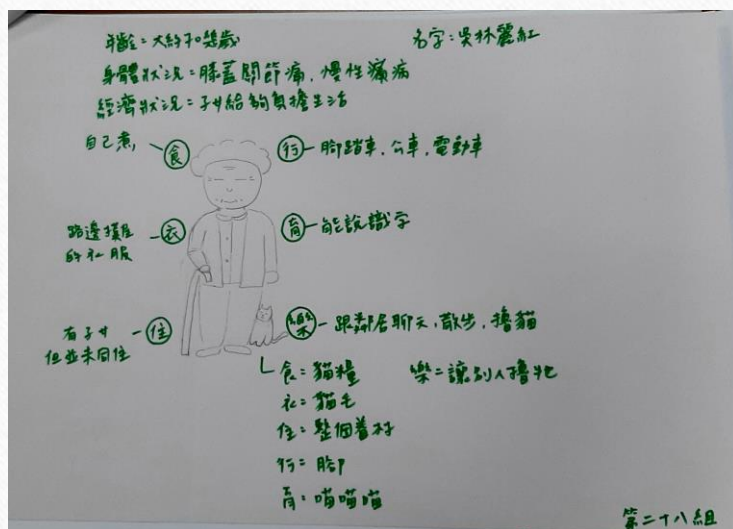 年齡：大約70幾歲
名字：吳林麗紅
身體狀況：膝蓋關節痛，慢性病痛
經濟狀況：子女給夠負擔生活
自己煮，
食
行
腳踏車，公車，電動車
路邊攤
的衣服
衣
育
能說識字
有子女
但並未同住
住
樂
跟鄰居聊天，散步，擼貓
食：貓糧
樂：讓別人擼牠
衣：貓毛
住：整個眷村
行：腳
育：喵喵喵
第二十八組